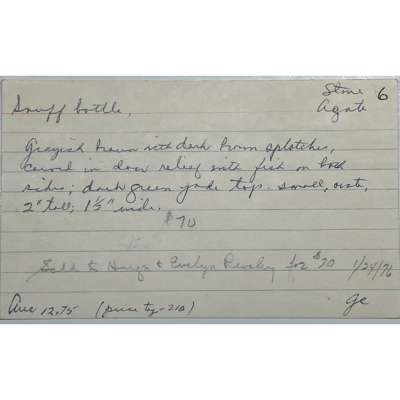 Stone 6
Snuff bottle, Agate
Grayish brown with dark brown splotches,
carved in low relief with fish on both
sides; dark green jade top. small, ovate,
2" tall; 1½" wide.
$70
Sold to & Evelyn for $70 1/24/76
12.75 (price tag-210) gc